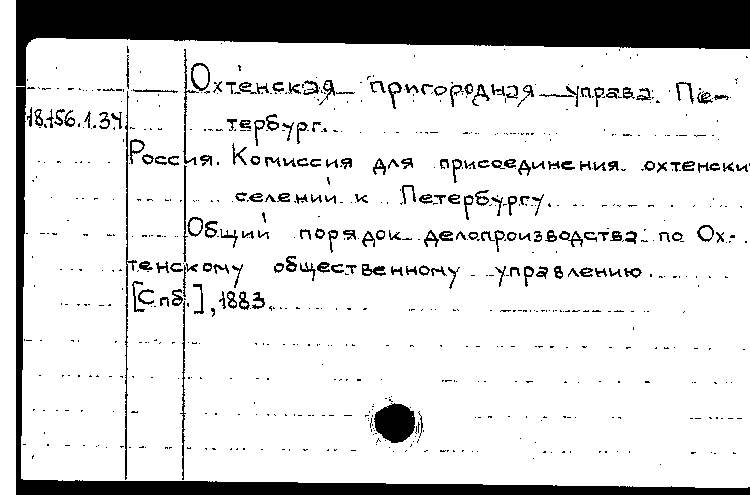 Охтенская пригородная управа. Пе-
18.156.1.34 тербург.
Россия. Комиссия для присоединения охтенски
селений к Петербургу.
Общий порядок делопроизводства по Ох-
тенскому общественному управлению.
[Спб.], 1883.